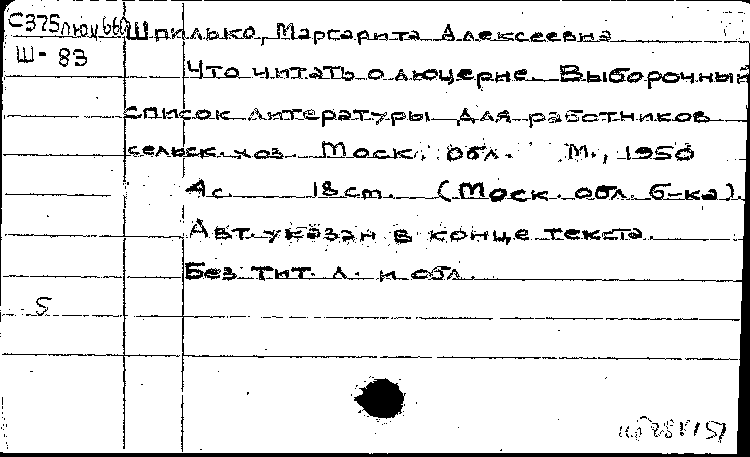 С375люц66 Шпилько, Маргарита Алексеевна
Ш-83
Что читать о люцерне. Выборочный
список литературы для работников
сельск. хоз. Моск. обл. М., 1950
4с. 18 см. (Моск. обл. б-ка).
Авт. указан в конце текста.
Без тит. л. и обл.
5